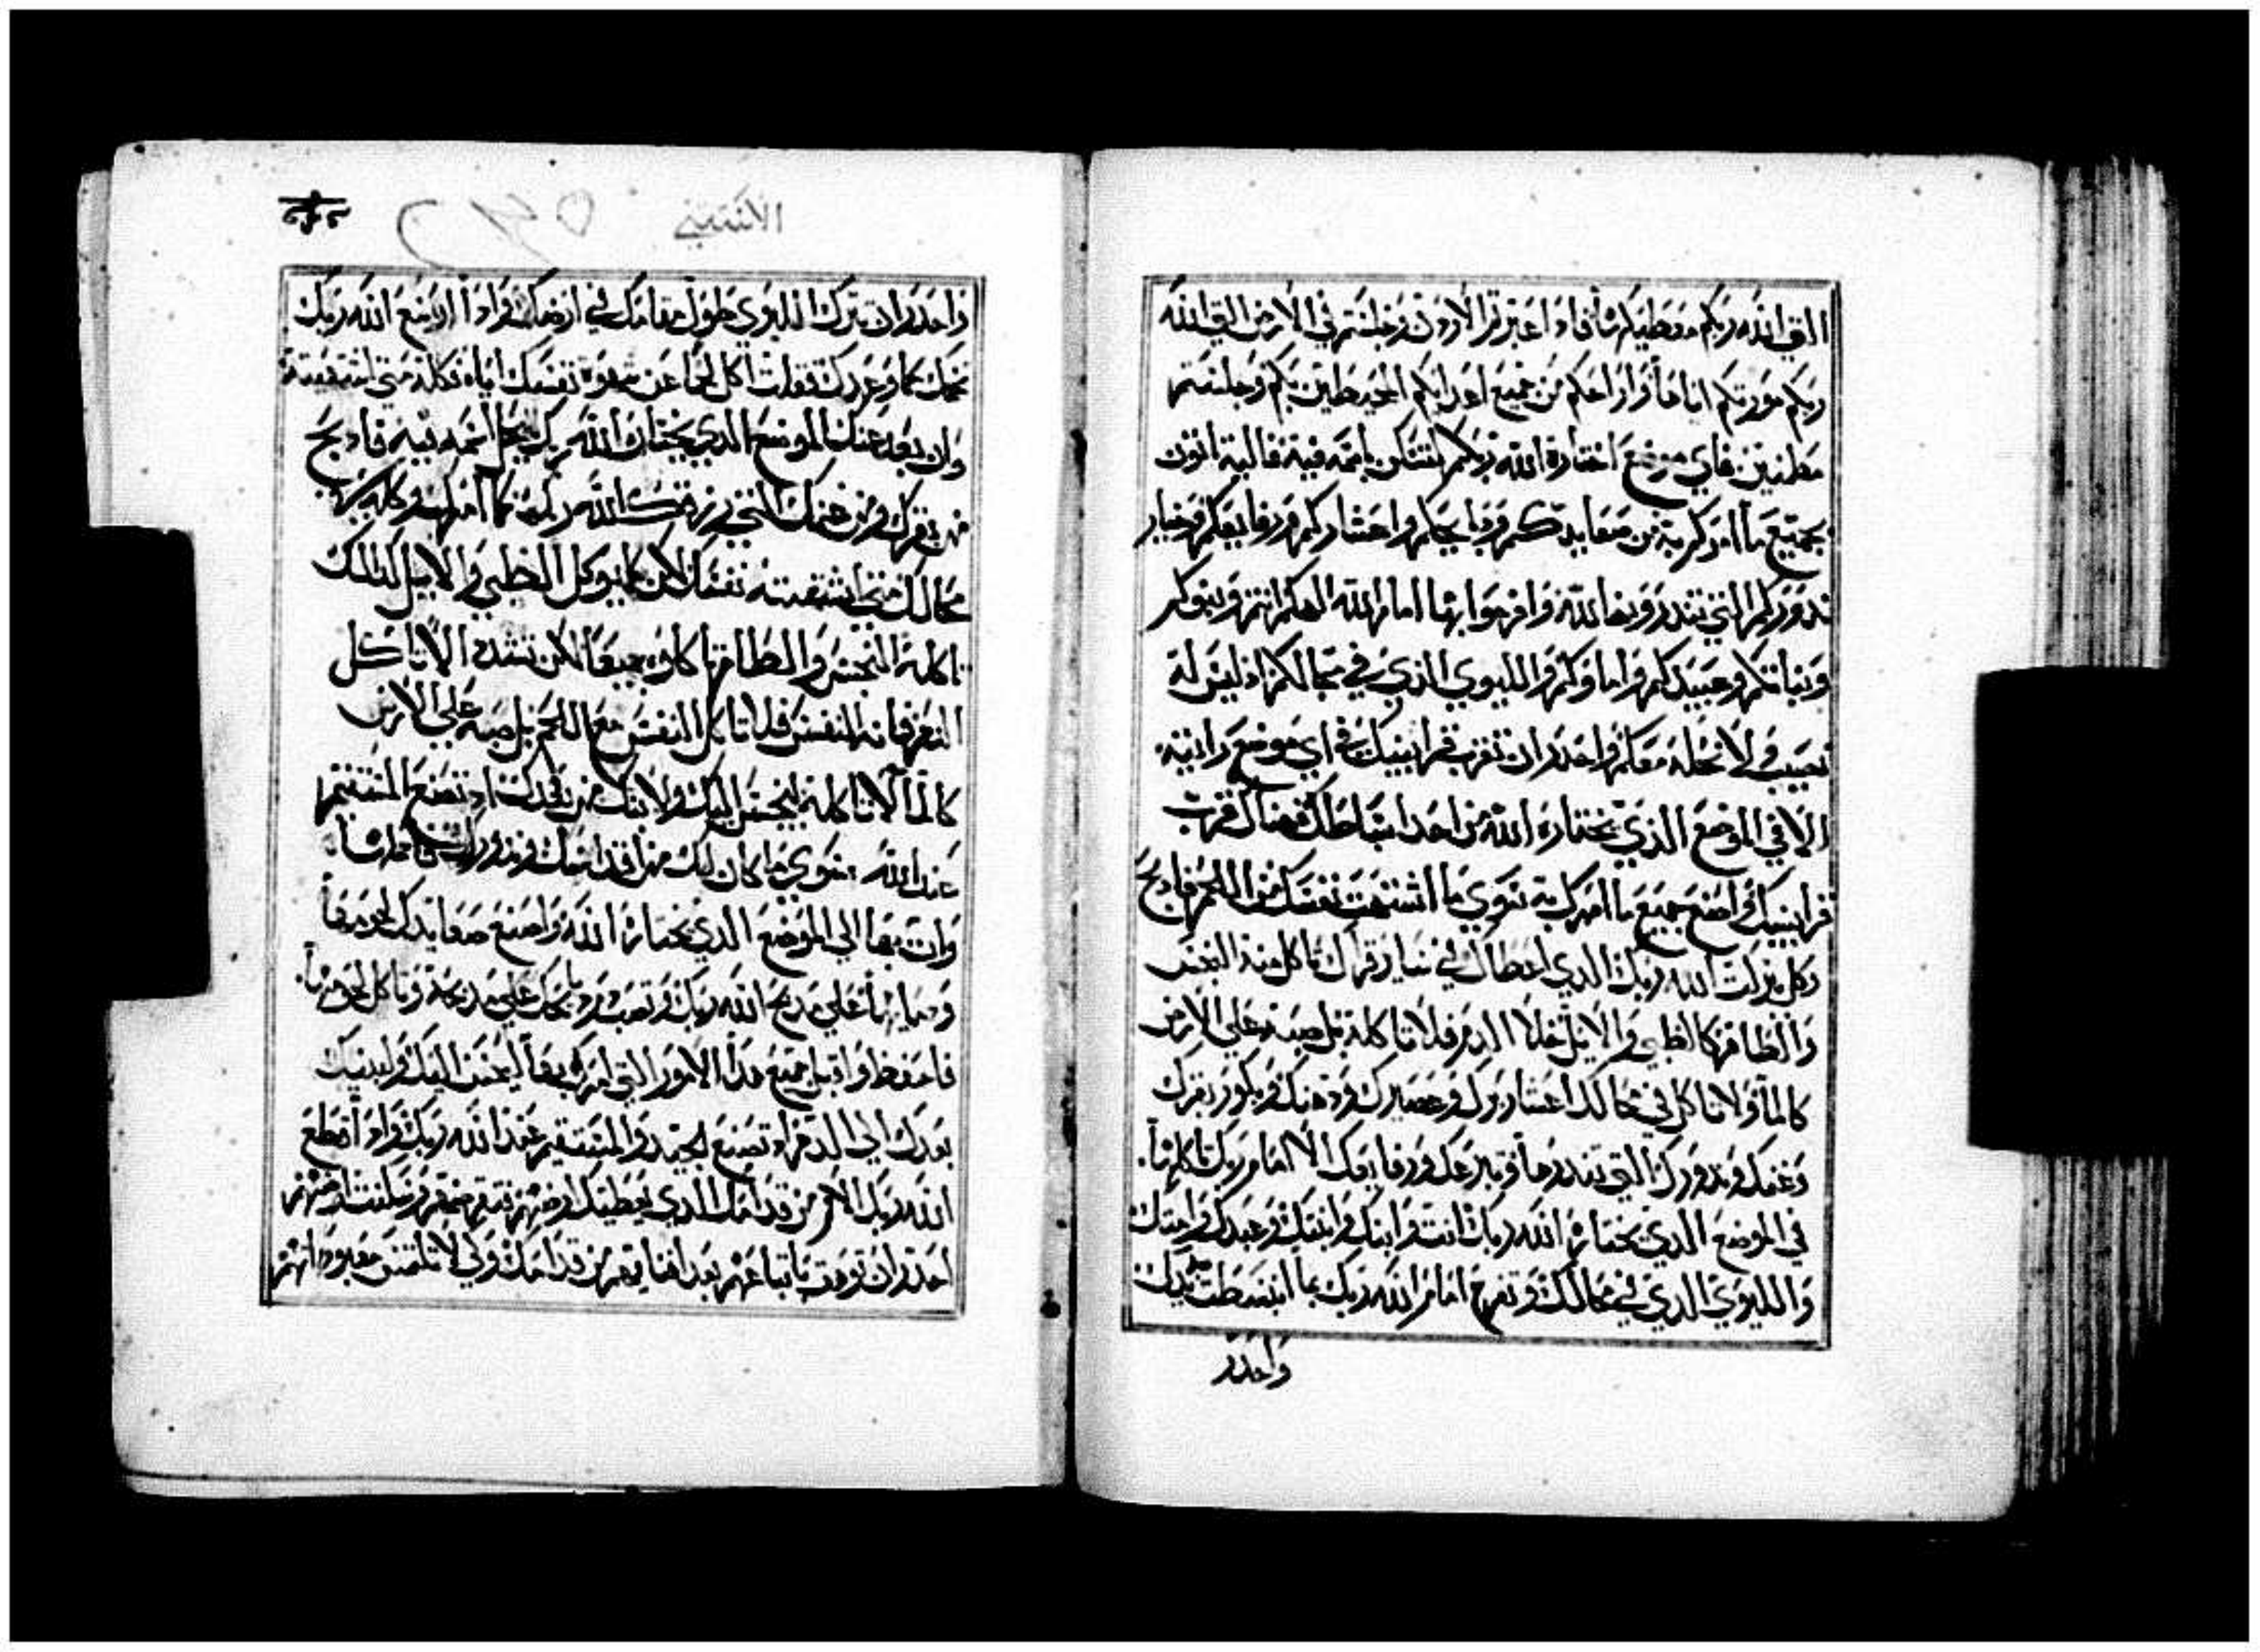 التي الله ربكم معطيكم اياها فاذا عبرتم الاردن وجلستم في الارض التي الله
ربكم مورثكم اياها واراحكم من جميع اعدايكم المحيطين بكم وجلستم
مطمنين فاي موضع اختاره الله ربكم ليسكن باسمه فيه فاليه اتون
بجميع ما امركم به من صعايدكم وذبايحكم واعشاركم ورفايعكم وخيار
ندوركم التي تندرونها لله وافرحوا بها امام الله الهكم انتم وبنوكم
وبناتكم وعبيدكم واماوكم والليوي الذي في محالكم اذ ليس له
نصيب ولا نحله معكم واحدر ان تقرب قرابينك في اي موضع رايته
الا في الموضع الذي يختاره الله من احد اسباطك فهناك قرب
قرابينك واصنع جميع ما امرك به سوي ما اشتهت نفسك من اللحم فادبح
وكل بركت الله ربك الدي اعطاك في ساير قراك تاكل منه النجس
والطاهر كالظبي والايل خلا الدم فلا تاكله بل صبه علي الارض
كالما ولا تاكل في محالك اعشار برك وعصيرك ودهنك وبكور بقرك
وغنمك وندورك التي تندرها وتبرعك ورفايعك الا امام ربك تاكلها
في الموضع الدي يختاره الله ربك انت وابنك وابنتك وعبدك وامتك
والليوي الدي في محالك وتفرح امام الله ربك بما انبسطت يدك
واحدر
الاستثني
واحدر ان تترك الليوي طول مقامك في ارضك واذا اوسع الله ربك
تخمك كما وعدك فقلت اكل لحما عن شهوة نفسك اياه فكله متي اشتهيته
وان بعد عنك الموضع الدي يختار الله ربك ليحل اسمه فيه فادبح
من بقرك ومن غنمك التي رزقك الله ربك كما امرك وكله في
محالك متي اشتهيته نفسك لكن كما يوكل الظبي والايل كدلك
تاكله النجس والطاهر ياكلوه جميعا لكن تشدد الا تاكل
الدم فانه النفس فلا تاكل النفس مع اللحم بل صبه علي الارض
كالما لا تاكله ليحسن اليك ولابنك من بعدك اذ تصنع المستقيم
عند الله سوي ما كان لك من اقداسك وندورك
وات بها الي الموضع الدي يختاره الله واصنع صعايدك لحومها
ودمايها علي مدبح الله ربك وتصب دم دبايحك علي مدبحه وتاكل لحومها
فاحفظ واقبل جميع هدا الامور التي امرك بها ليحسن اليك ولبنيك
بعدك الي الدهر اذ تصنع الجيد والمستقيم عند الله ربك واذا قطع
الله ربك الامم من قدامك الدي يعطيك ارضهم
احدر ان توهق باتباعهم بعد افنايهم من قدامك ولا تلتمس معبوداتهم